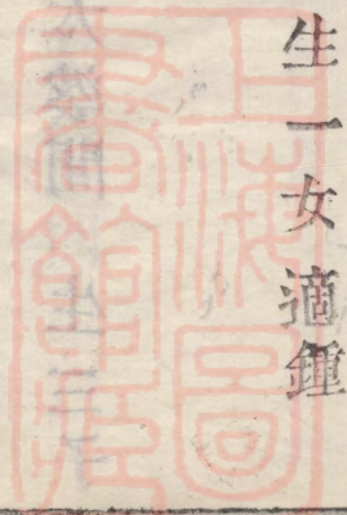 生一女適鍾
上海圖
書館藏